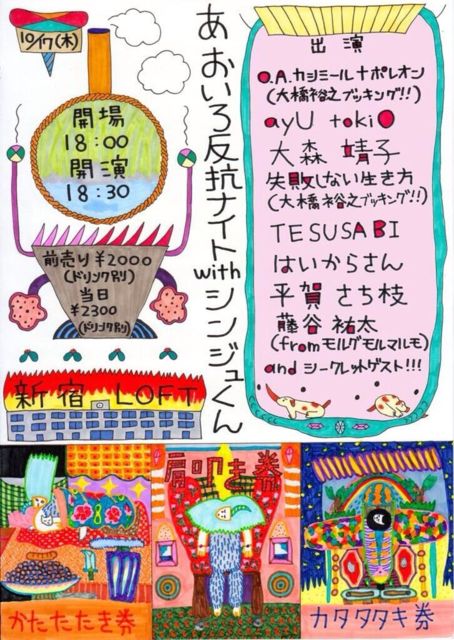 10/17(木)
あおいろ反抗ナイト
with シンジュくん
開場
18:00
開演
18:30
前売り¥2000
(ドリンク別)
当日
¥2300
(ドリンク別)
新宿 LOFT
出演
O.A.カシミールナポレオン
(大橋裕之ブッキング!!)
ayU tokiO
大森 靖子
失敗しない生き方
(大橋裕之ブッキング!!)
TESUSABI
はいからさん
平賀 さち枝
藤谷 祐太
(fromモルグモルマルモ)
and シークレットゲスト!!!
かたたたき券
肩叩き券
カタタタキ券